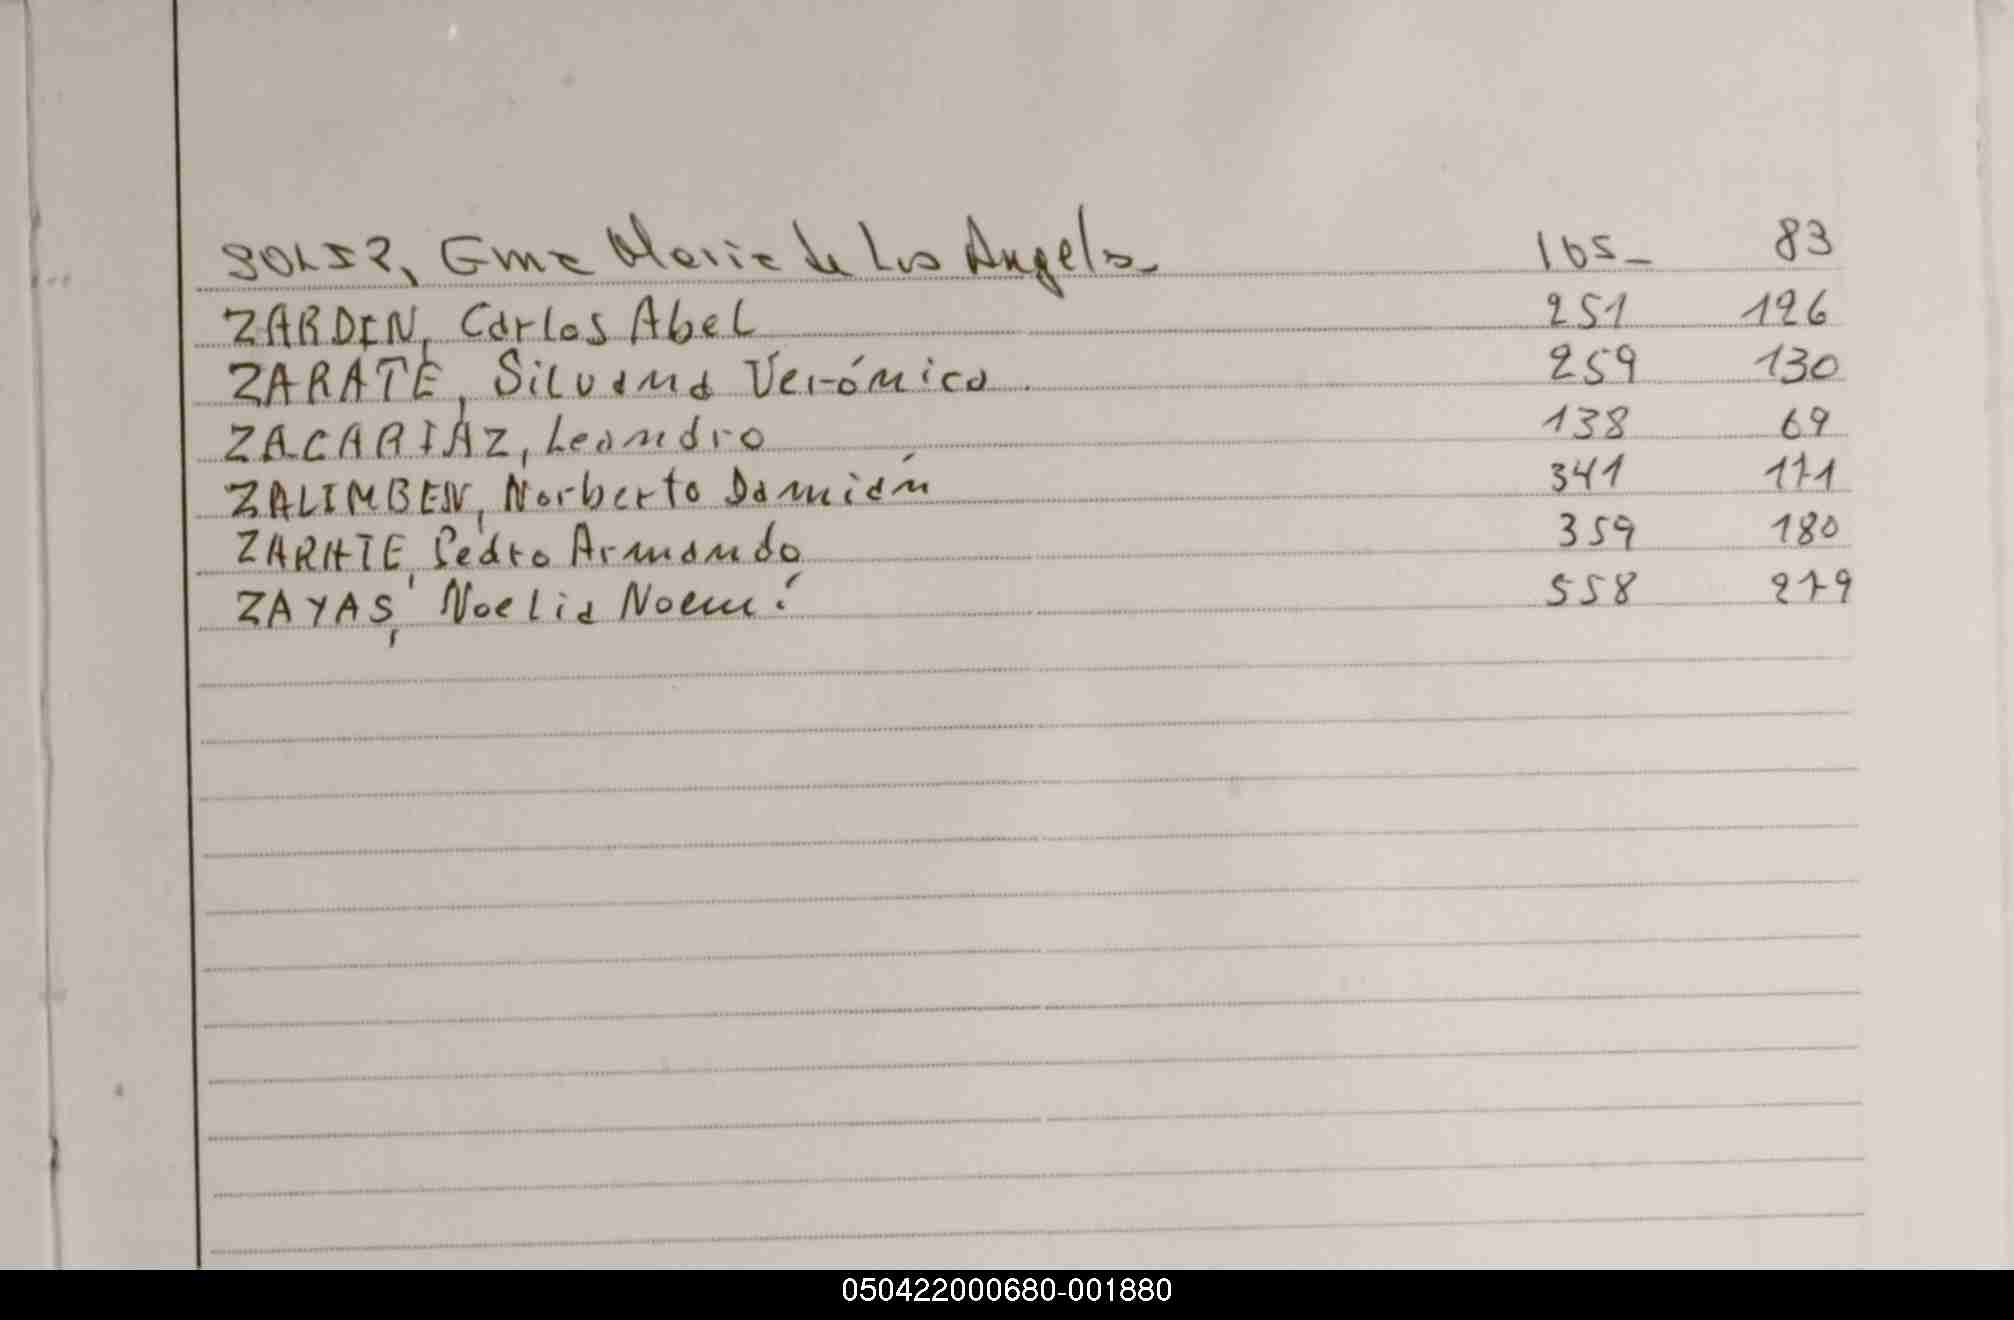 SOLIS, Gma Maria de Los Angeles 165 83
ZARDEN, Carlos Abel 251 126
ZARATE, Silvana Verónica 259 130
ZACARIAZ, Leandro 138 69
ZALIMBEN, Norberto Damián 341 171
ZARATE, Pedro Armando 359 180
ZAYAS, Noelia Noemí 558 279
050422000680-001880